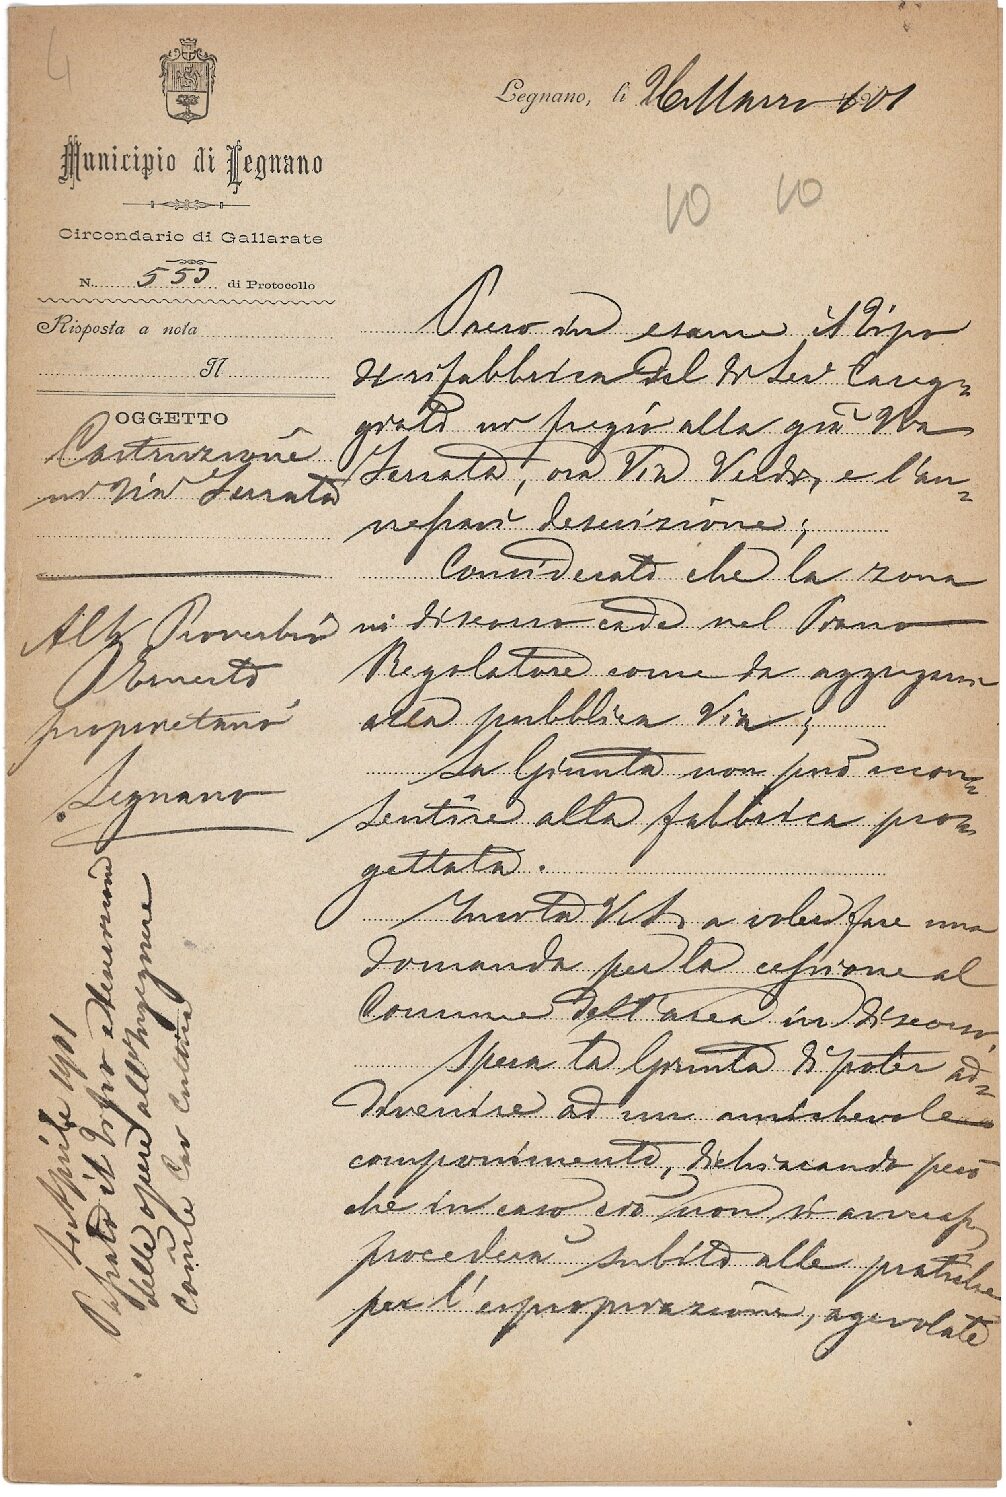 4
Municipio di Legnano
Circondario di Gallarate
N. 553 di Protocollo
Risposta a nota
N
OGGETTO
Costruzione
in via Serrata
Alt Proverbio
Ernesto
proprietario
Legnano
Aprile 1901
il tipo e descrizione
delle opere all'Ingegnere
Conte Cav
Legnano, li 26 Marzo 901
10 10
Preso in esame il tipo
di rifabbrica del di Lei Caseg-
giato in fregio alla già Via
Serrata, ora Via Verdi, e l'an-
nessavi descrizione;
Considerato che la zona
in discorso cade nel Piano
Regolatore come da aggregarsi
alla pubblica Via;
La Giunta non può accon-
sentire alla fabbrica pro-
gettata.
Invita V.S. a voler fare una
domanda per la cessione al
Comune dell'area in discorso.
Spera la Giunta di poter ad-
divenire ad un amichevole
componimento, dichiarando però
che in caso ciò non si avveri
procederà subito alle pratiche
per l'espropriazione, agevolate